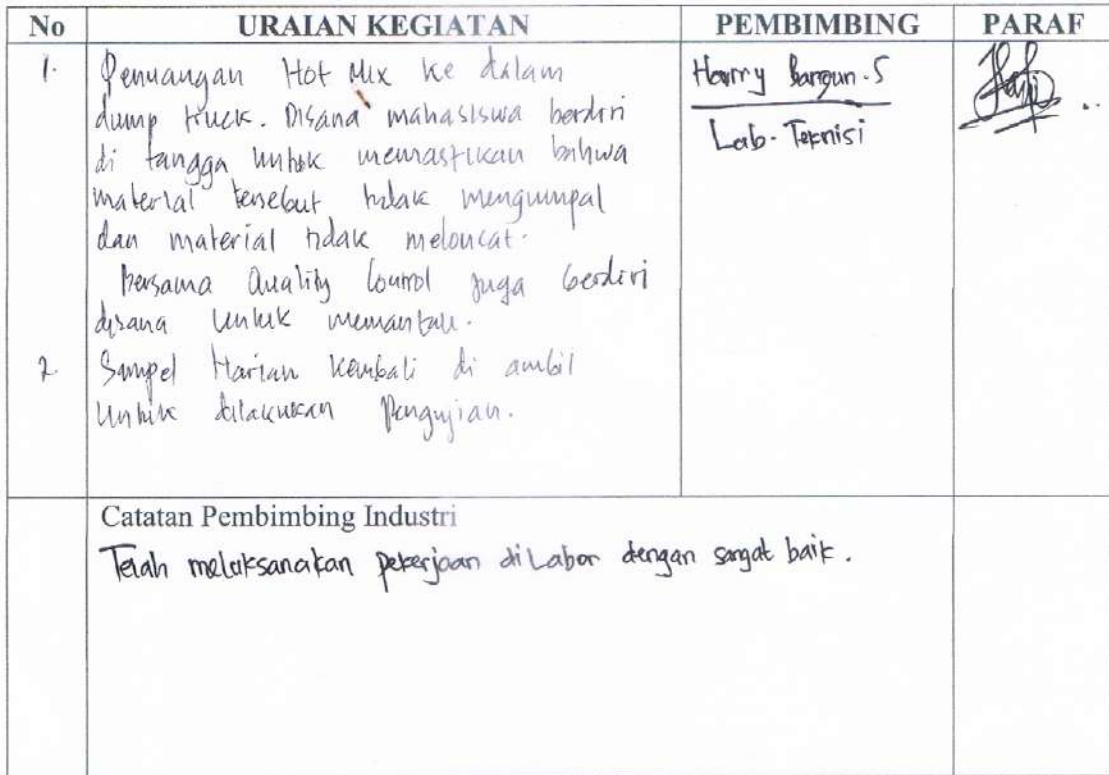 No URAIAN KEGIATAN PEMBIMBING PARAF
1. Penuangan Hot Mix ke dalam
dump truck. Disana mahasiswa berdiri
di tangga untuk memastikan bahwa
material tersebut tidak mengumpal
dan material tidak meloncat.
bersama Quality Control juga berdiri
disana untuk memantau.
2. Sampel Harian kembali di ambil
untuk dilakukan Pengujian.
Harry Bangun.S
Lab-Teknisi
Catatan Pembimbing Industri
Telah melaksanakan pekerjaan di Labor dengan sangat baik.